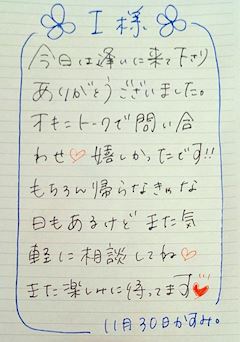 I様
今日は逢いに来て下さり
ありがとうございました。
オキニトークで問い合
わせ♡嬉しかったです!!
もちろん帰らなきゃな
日もあるけど また気
軽に相談してね♡
また楽しみに待ってます♥
11月30日かすみ。